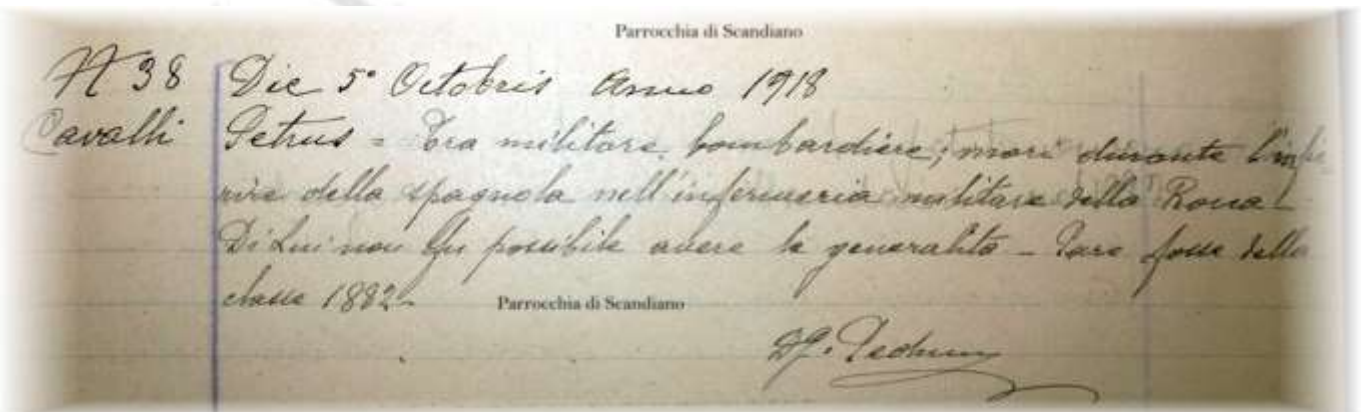 Parrocchia di Scandiano
N 38 Die 5° Octobris Anno 1918
Cavalli Petrus = Era militare, bombardiere; morì durante l'infie
rire della spagnola nell'infermeria militare della Rocca -
Di Lui non fu possibile avere le generalità - Pare fosse della
classe 1882 -
Parrocchia di Scandiano